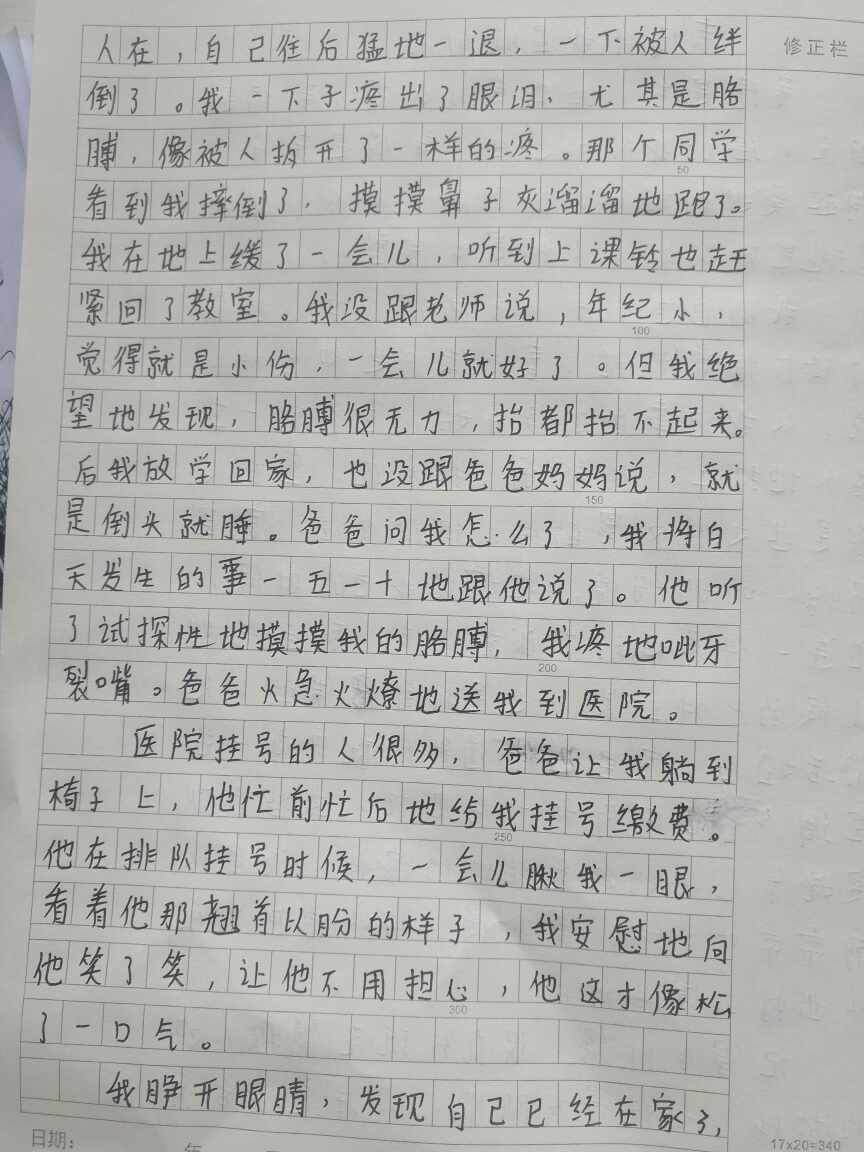 人在，自己往后猛地一退，一下被人绊
修正栏
倒了。我一下子疼出了眼泪，尤其是胳
膊，像被人扳开了一样的疼。那个同学
50
看到我摔倒了，摸摸鼻子灰溜溜地跑了。
我在地上缓了一会儿，听到上课铃也赶
紧回了教室。我没跟老师说，年纪小，
100
觉得就是小伤，一会儿就好了。但我绝
望地发现，胳膊很无力，抬都抬不起来。
后我放学回家，也没跟爸爸妈妈说，就
150
是倒头就睡。爸爸问我怎么了，我将白
天发生的事一五一十地跟他说了。他听
了试探性地摸摸我的胳膊，我疼地呲牙
200
裂嘴。爸爸火急火燎地送我到医院。
医院挂号的人很多，爸爸让我躺到
椅子上，他忙前忙后地给我挂号缴费。
250
他在排队挂号时候，一会儿瞅我一眼，
看着他那翘首以盼的样子，我安慰地向
他笑了笑，让他不用担心，他这才像松
300
了一口气。
我睁开眼睛，发现自己已经在家了，
日期： 年
17x20=340